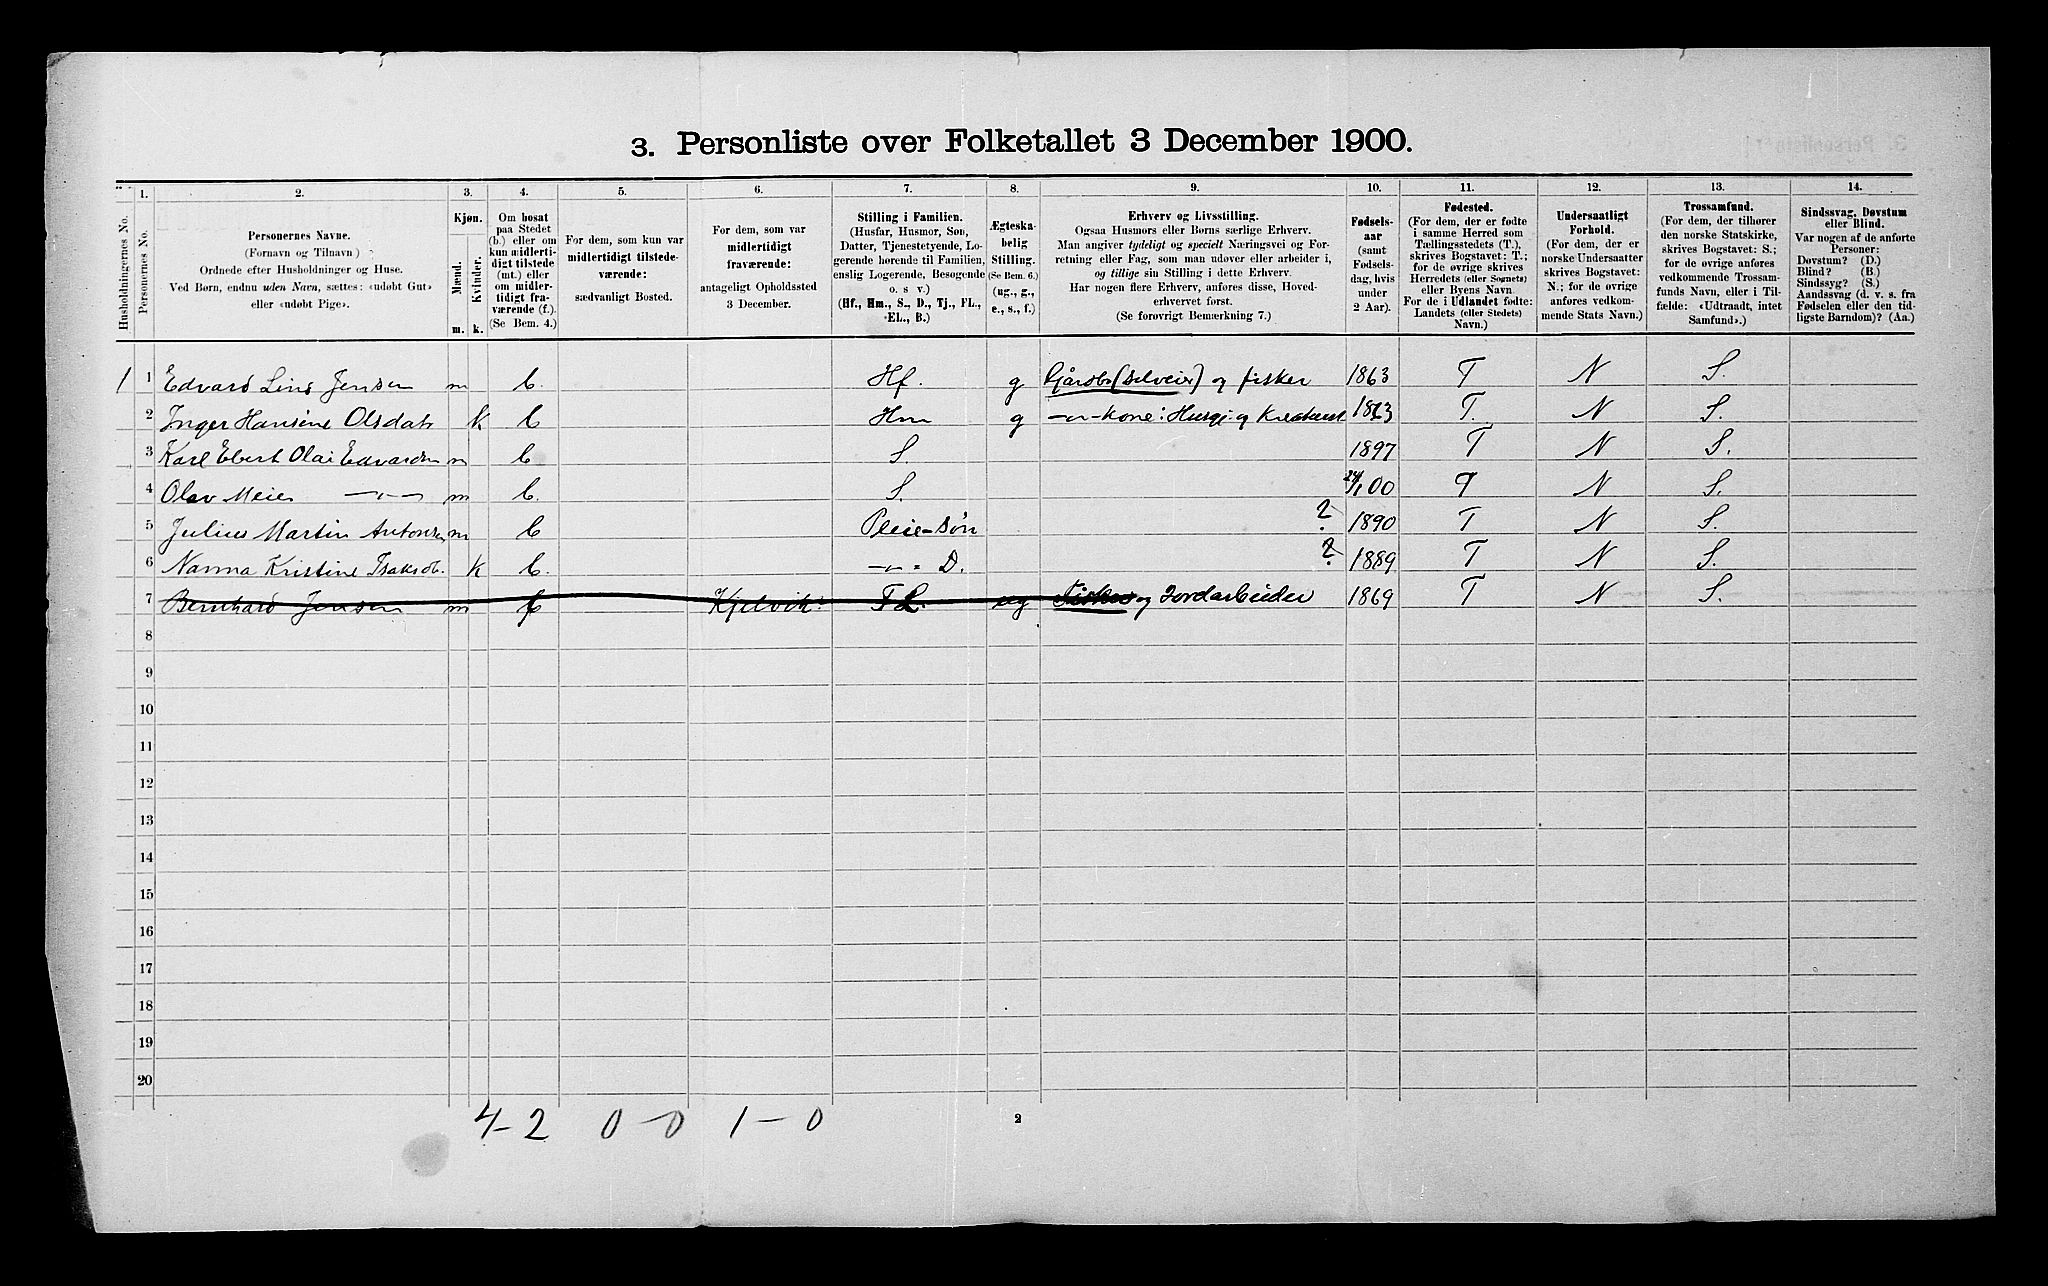 3. Personliste over Folketallet 3 December 1900.
Husholdningernes No.
1.
Personernes No.
2.
Personernes Navne.
(Fornavn og Tilnavn)
Ordnede efter Husholdninger og Huse.
Ved Børn, endnu uden Navn, sættes: «udøbt Gut»
eller «udøbt Pige».
3.
Kjøn.
Mænd.
Kvinder.
m. k.
4.
Om bosat
paa Stedet
(b.) eller om
kun midlerti-
digt tilstede
(mt.) eller
om midler-
tidigt fra-
værende (f.).
(Se Bem. 4.)
5.
For dem, som kun var
midlertidigt tilstede-
værende:
sædvanligt Bosted.
6.
For dem, som var
midlertidigt
fraværende:
antageligt Opholdssted
3 December.
7.
Stilling i Familien.
(Husfar, Husmor, Søn,
Datter, Tjenestetyende, Lo-
gerende hørende til Familien,
enslig Logerende, Besøgende
o. s v.)
(Hf., Hm., S., D., Tj., FL.,
EL., B.)
8.
Ægteska-
belig
Stilling.
(Se Bem. 6.)
(ug., g.,
e., s., f.)
9.
Erhverv og Livsstilling.
Ogsaa Husmors eller Børns særlige Erhverv.
Man angiver tydeligt og specielt Næringsvei og For-
retning eller Fag, som man udøver eller arbeider i,
og tillige sin Stilling i dette Erhverv.
Har nogen flere Erhverv, anføres disse, Hoved-
erhvervet først.
(Se forøvrigt Bemærkning 7.)
10.
Fødsels-
aar
(samt
Fødsels-
dag, hvis
under
2 Aar).
11.
Fødested.
(For dem, der er fødte
i samme Herred som
Tællingsstedets (T.),
skrives Bogstavet: T.;
for de øvrige skrives
Herredets (eller Sognets)
eller Byens Navn.
For de i Udlandet fødte:
Landets (eller Stedets)
Navn.)
12.
Undersaatligt
Forhold.
(For dem, der er
norske Undersaatter
skrives Bogstavet:
N.; for de øvrige
anføres vedkom-
mende Stats Navn.)
13.
Trossamfund.
(For dem, der tilhører
den norske Statskirke,
skrives Bogstavet: S.;
for de øvrige anføres
vedkommende Trossam-
funds Navn, eller i Til-
fælde: «Udtraadt, intet
Samfund».)
14.
Sindssvag, Døvstum
eller Blind.
Var nogen af de anførte
Personer:
Døvstum? (D.)
Blind? (B.)
Sindssyg? (S.)
Aandssvag (d. v. s. fra
Fødselen eller den tid-
ligste Barndom)? (Aa.)
1 1 Edvard Jensen m b. Hf. g Gårdb. (selveier) og fisker 1863 T N S.
2 Inger Hansine Olsdat. k b Hm g -"- kone: 1863 T. N S.
3 Karl Ebert Olai Edvardsen m b. S. 1897 T N S.
4 Olav Meier -"- m b. S. 00 T N S.
5 Julius Martin Antonsen m b Pleie-søn ? 1890 T N S.
6 Nanna Kristine Isaksd. k b. -"- D. ? 1889 T N S.
7 Bernhard Jensen m f Kjelvik FL. ug Fisker og Jordarbeider 1869 T N S.
8
9
10
11
12
13
14
15
16
17
18
19
20
4-2 0-0 1-0 2